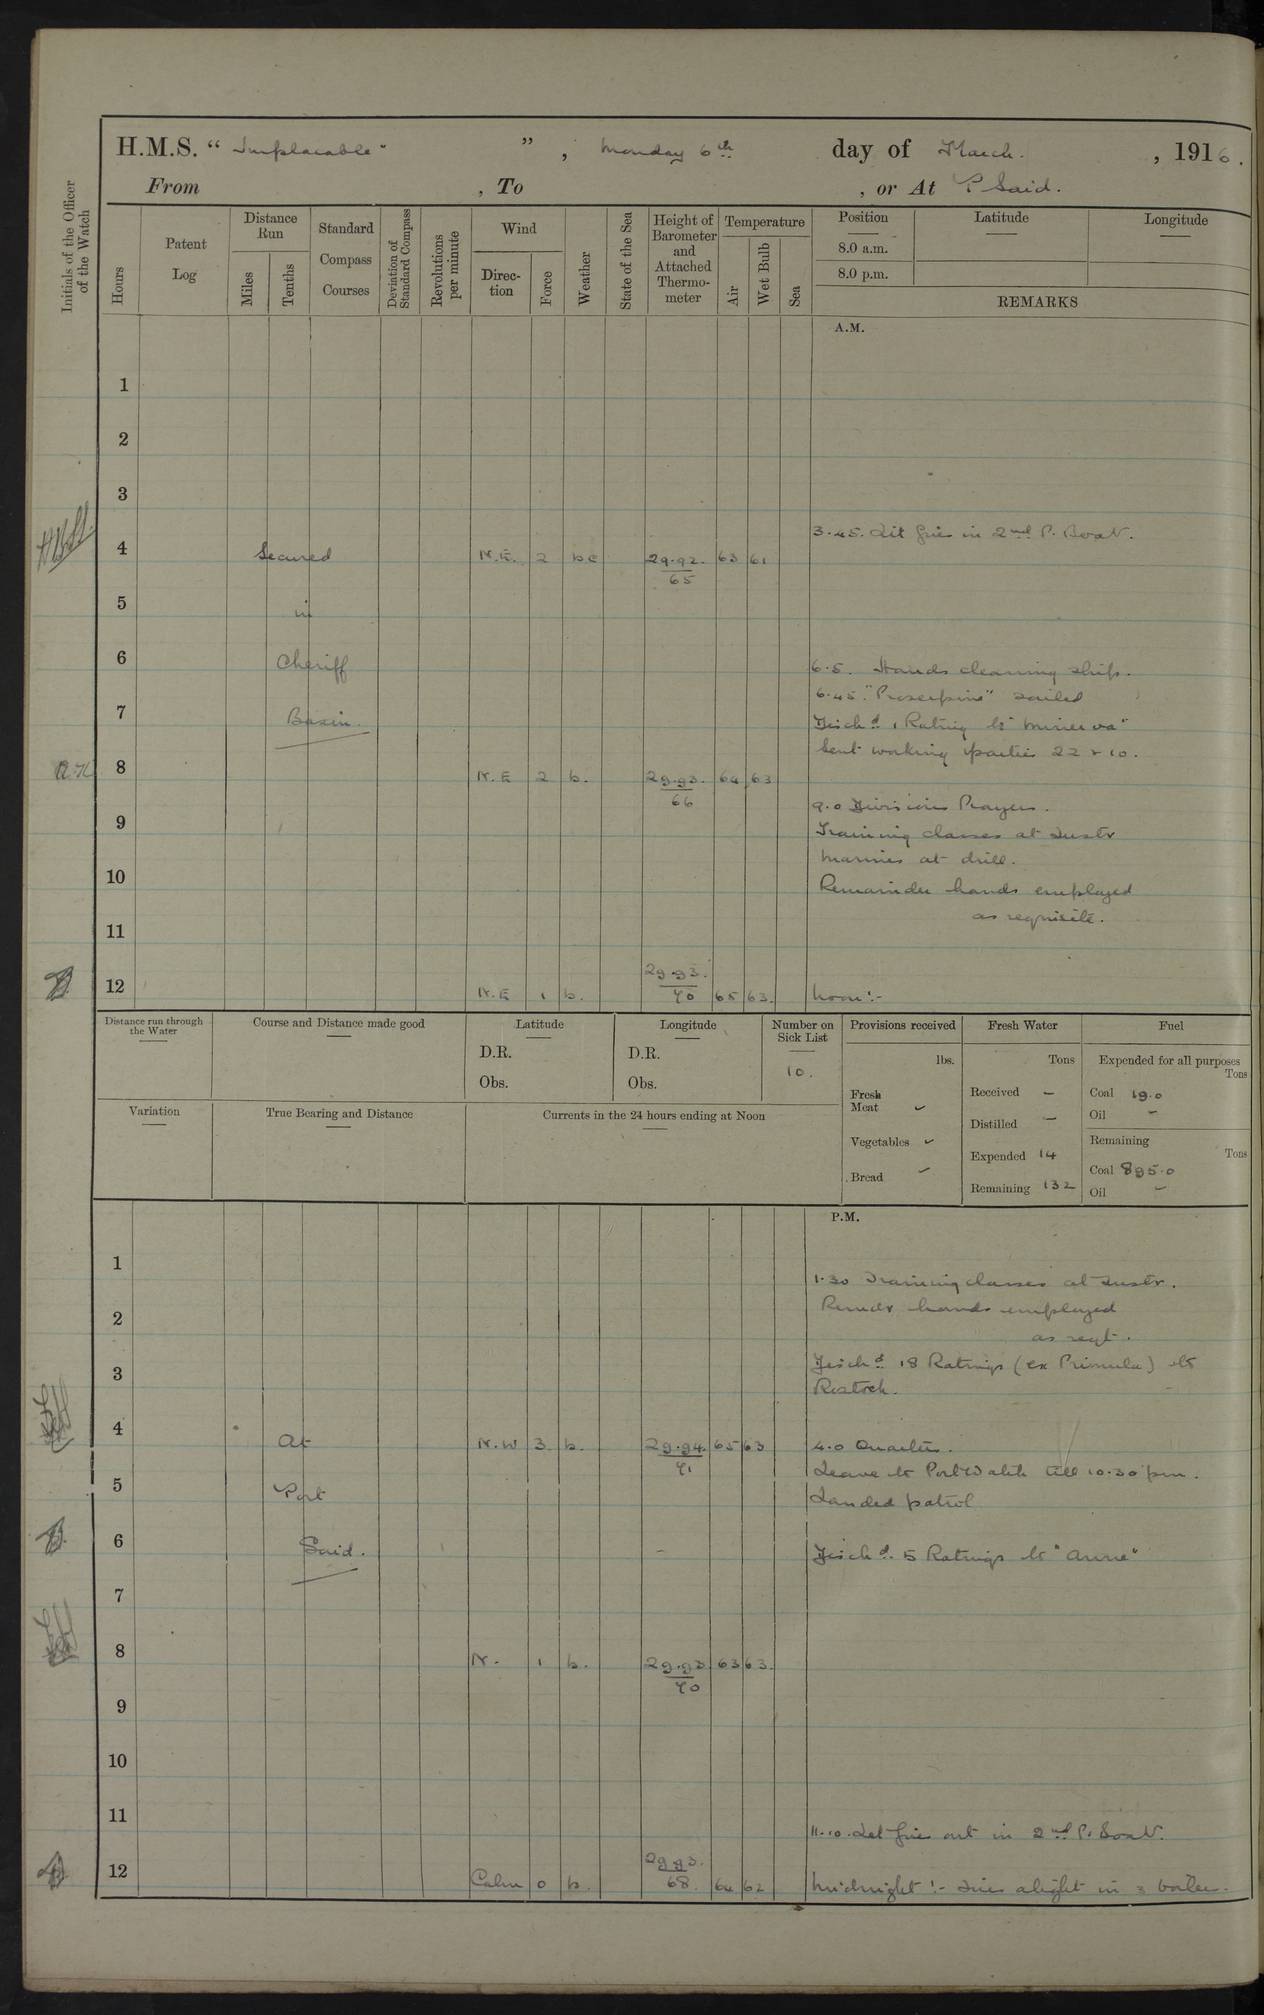 H.M.S. “ Implacable " ” , Monday 6th day of March. , 1916.
From , To , or At P. Said.
Initials of the Officer of the Watch
Hours
Patent Log
Distance Run
Miles
Tenths
Standard Compass Courses
Deviation of Standard Compass
Revolutions per minute
Wind
Direc-tion
Force
Weather
State of the Sea
Height of Barometer and Attached Thermo-meter
Temperature
Air
Wet Bulb
Sea
Position
Latitude
Longitude
8.0 a.m.
8.0 p.m.
REMARKS
A.M.
1
2
3
3.45. Lit fires in 2nd P. Boat.
4 Secured N.E. 2 bc 29.92. 65 63 61
5 in
6 Cheriff
6.5. Hands cleaning ship.
6.45. "Proserpine" sailed
7 Basin.
Disch'd. 1 Rating to "Minerva"
Sent working parties 22 & 10.
8 N.E 2 b. 29.93. 66 64 63
9.0 Divisions Prayers.
9
Training classes at Instr
Marines at drill.
10
Remainder hands employed
as requisite.
11
12 N.E 1 b. 29.93. 70 65 63. Noon:-
Distance run through the Water
Course and Distance made good
Latitude
D.R.
Obs.
Longitude
D.R.
Obs.
Number on Sick List
10.
Provisions received
lbs.
Fresh Meat ✓
Vegetables ✓
Bread ✓
Fresh Water
Tons
Received —
Distilled —
Expended 14
Remaining 132
Fuel
Expended for all purposes
Tons
Coal 19.0
Oil —
Remaining
Tons
Coal 895.0
Oil —
Variation
True Bearing and Distance
Currents in the 24 hours ending at Noon
P.M.
1
1.30 Training classes at Instr.
2
Remdr hands employed
as reqt.
3
Disch'd. 18 Ratings (ex Primula) to
Restock.
4 At N.W 3 b. 29.94. 71 65 63 4.0 Quarters.
Leave to Port Watch till 10.30 pm.
5 Port
Landed patrol
6 Said.
Disch'd. 5 Ratings to "Anne"
7
8 N. 1 b. 29.93 70 63 63.
9
10
11
11.10. Let fires out in 2nd P. Boat.
12 Calm 0 b. 29.93. 68. 64 62 Midnight:- Fires alight in 3 boilers.